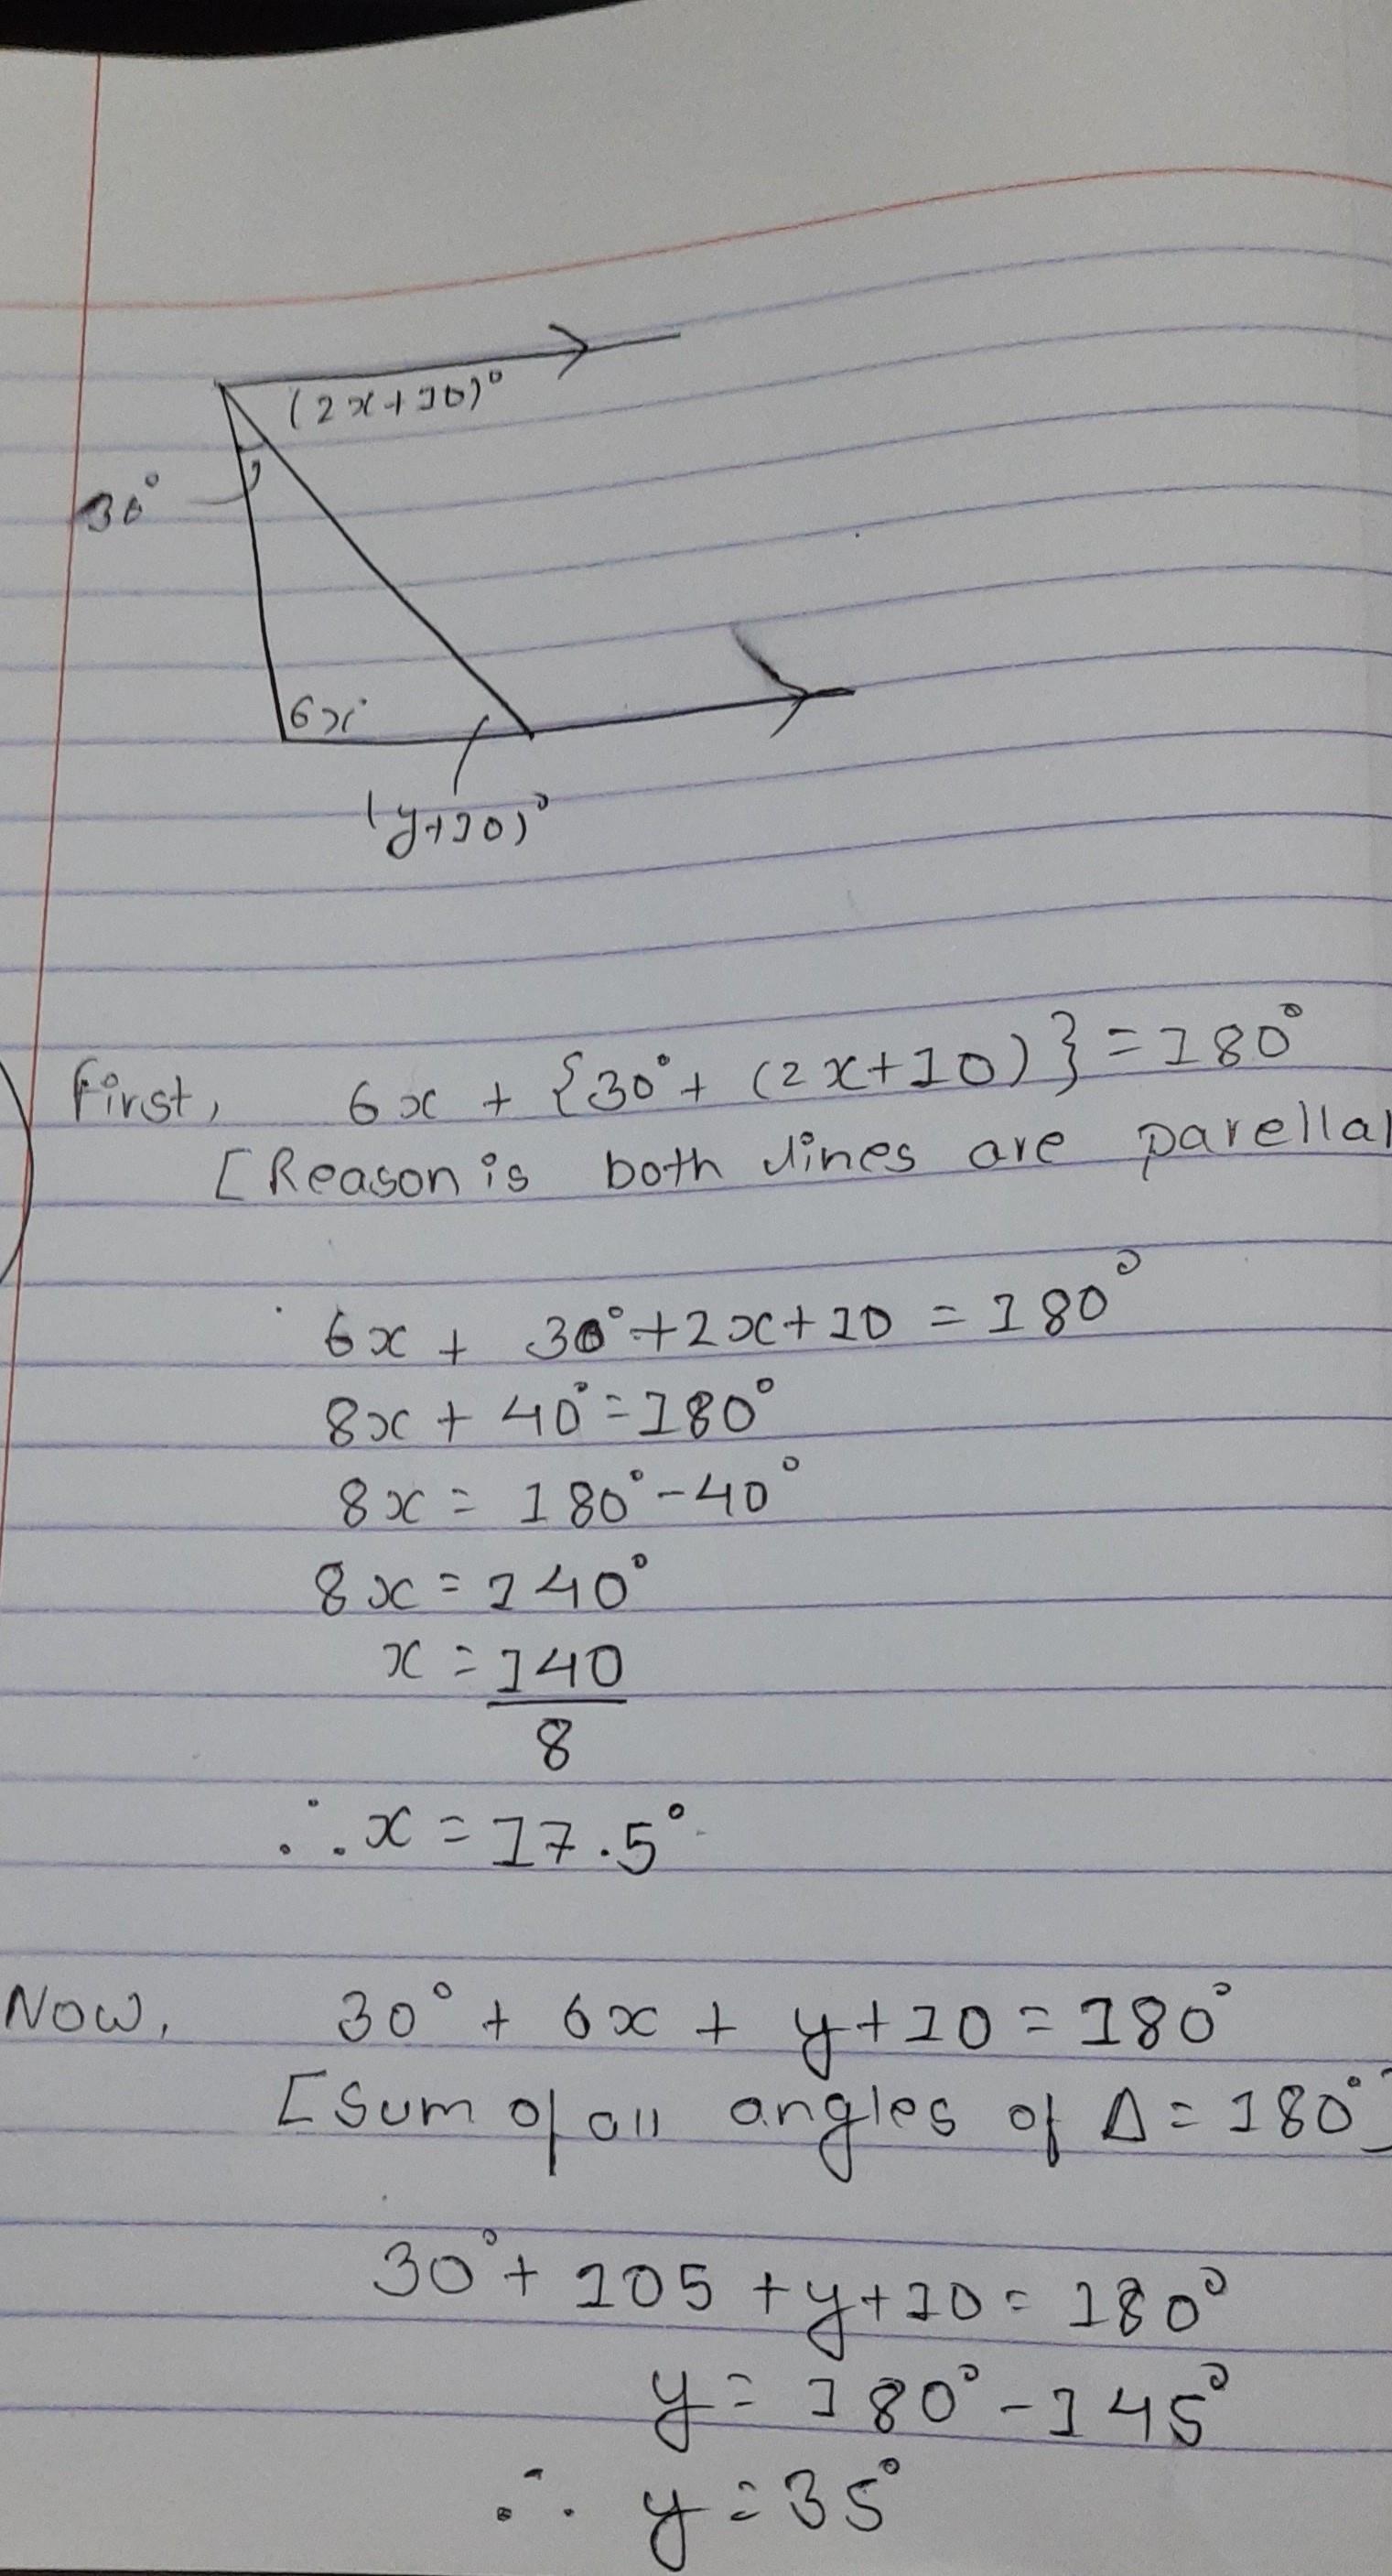 (2x+10)°
30°
6x°
(y+10)°
First, 6x + {30° + (2x+10)} = 180°
[Reason is both lines are parellal
6x + 30° + 2x + 10 = 180°
8x + 40° = 180°
8x = 180° - 40°
8x = 140°
x = 140
8
∴ x = 17.5°
Now, 30° + 6x + y + 10 = 180°
[Sum of all angles of Δ = 180°]
30° + 105 + y + 10 = 180°
y = 180° - 145°
∴ y = 35°